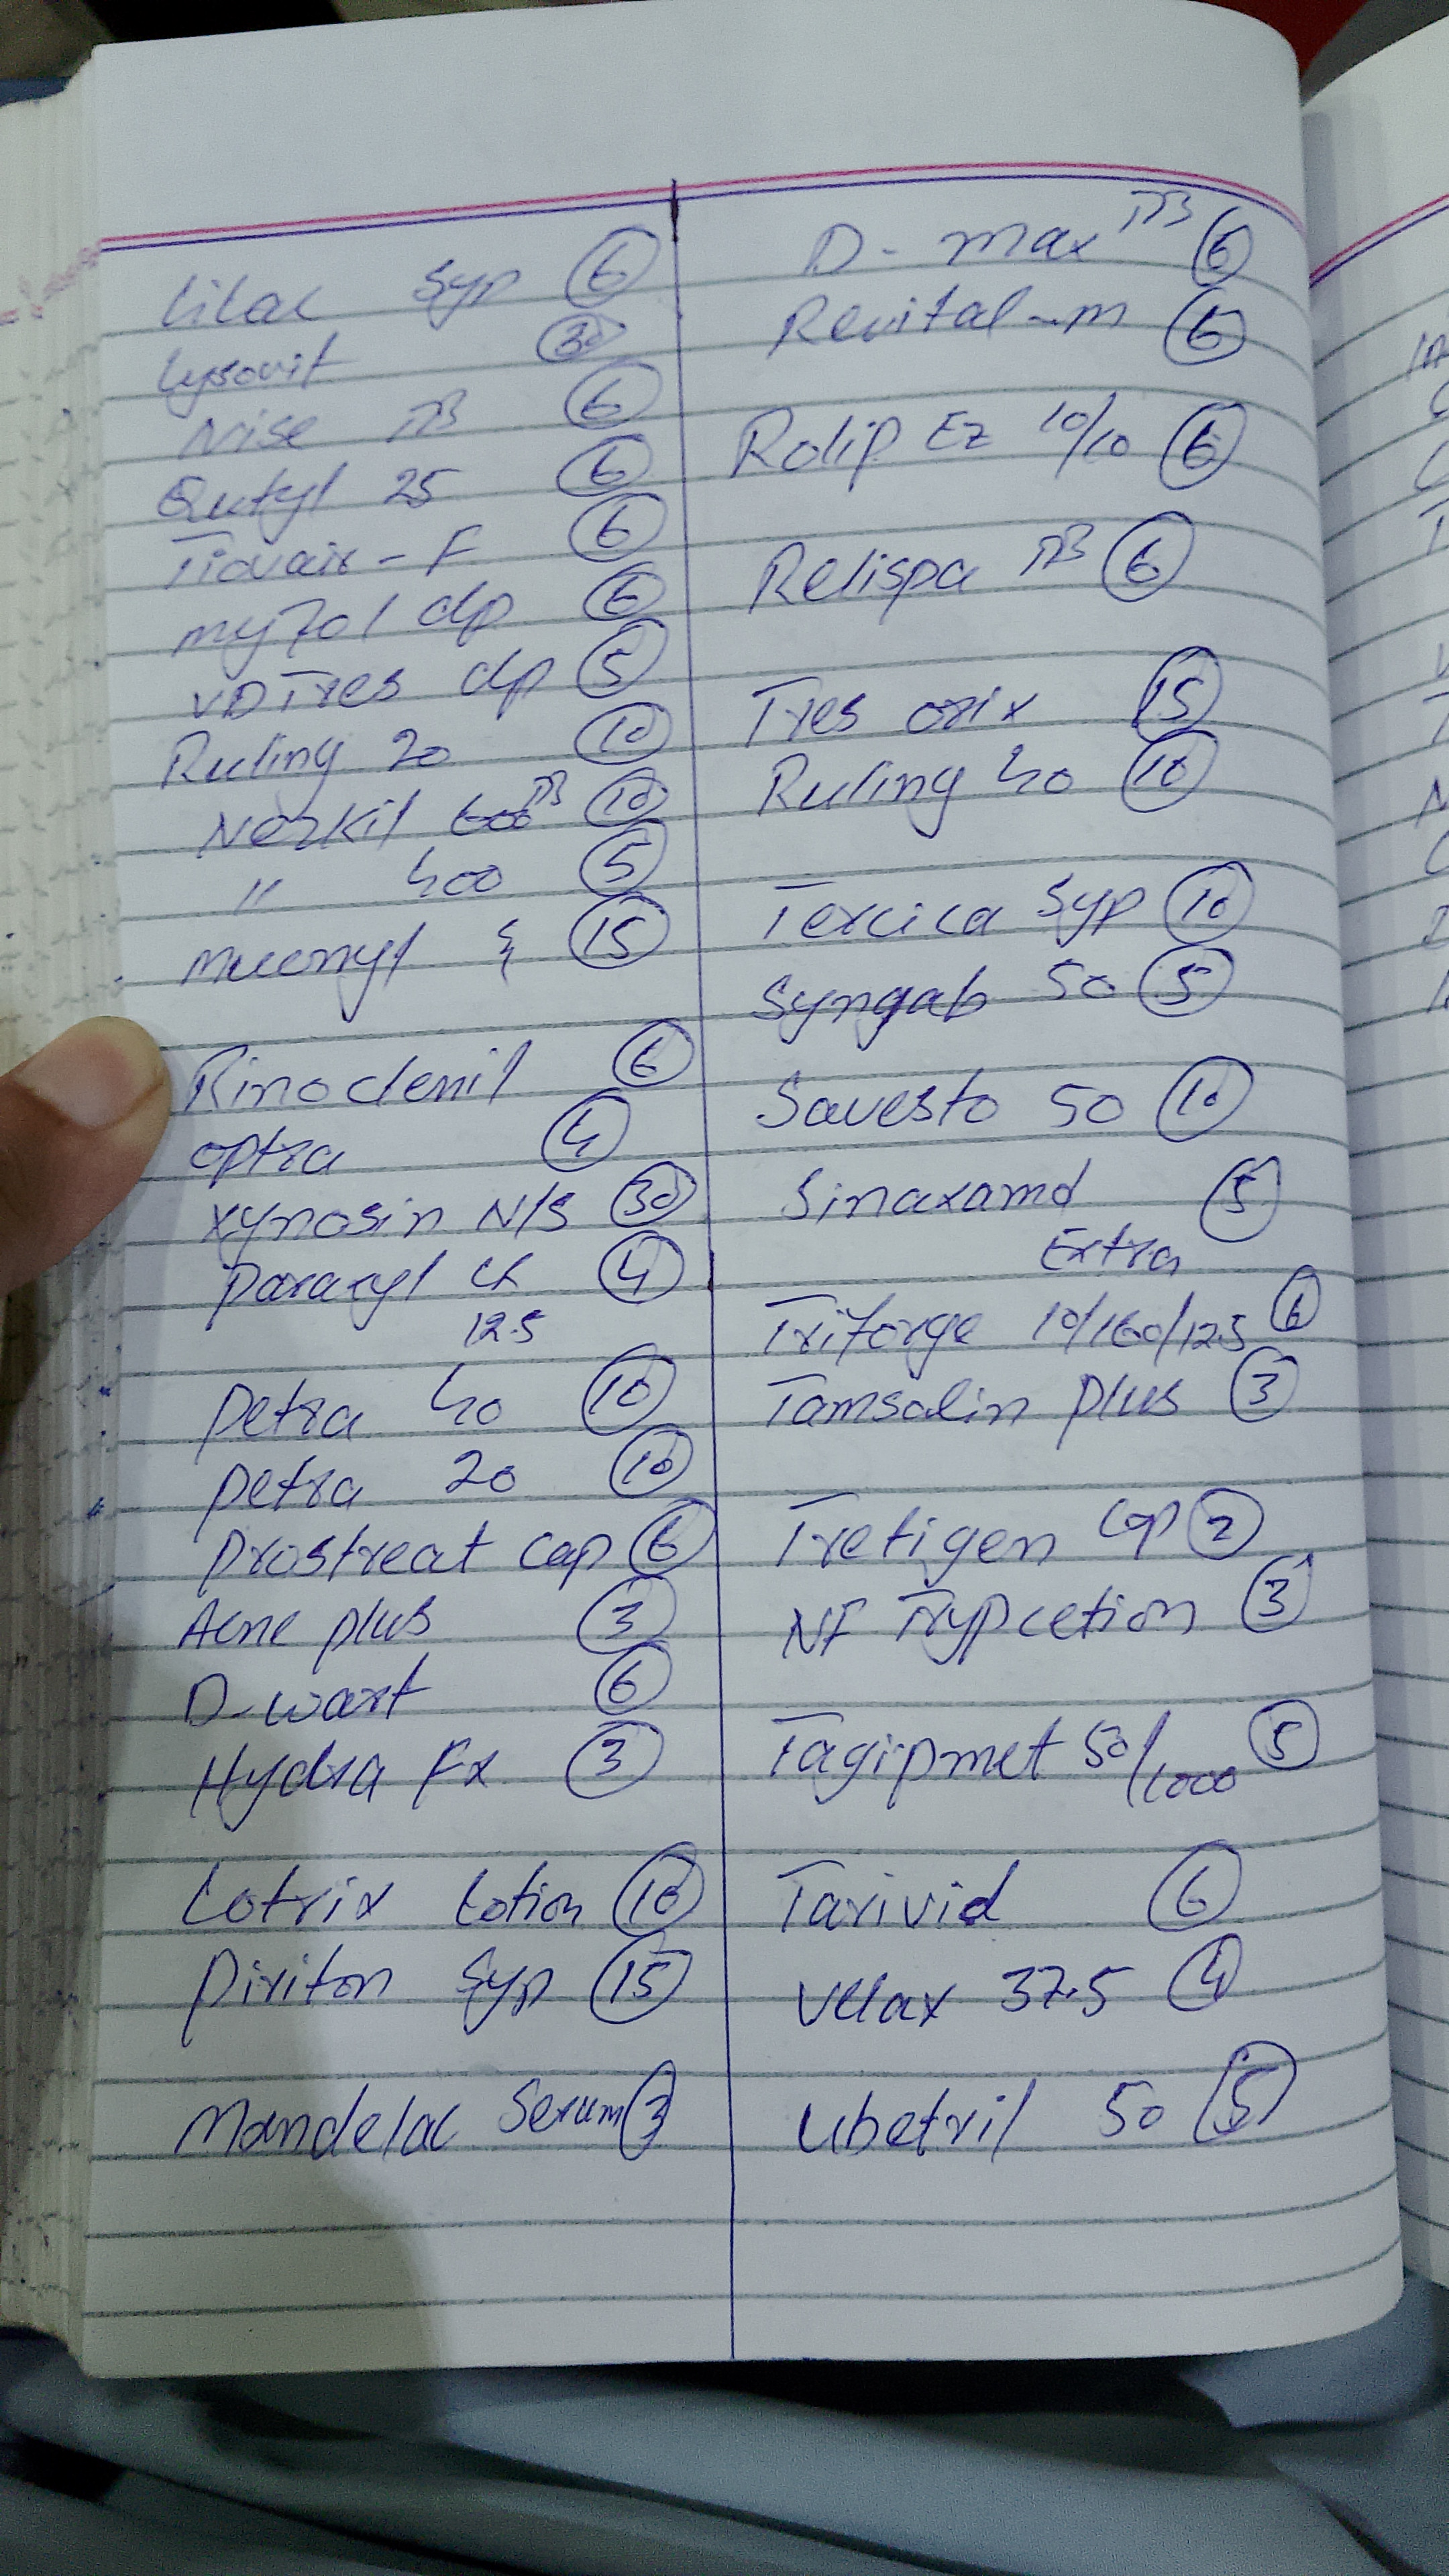 Lilac Syp 6
Lysovit 30
Nise TB 6
Qutyl 25 6
Tiovair - F 6
myfol dp 6
VD Tres dp 5
Ruling 20 10
Nerkil 600 TB 10
" 400 5
mucenyl 15
Rinoclenil 6
optra 4
xynosin N/S 30
paraxyl CR 4
12.5
petra 40 10
petra 20 10
prostreat cap 6
Acne plus 3
D-wart 6
Hydra Fx 3
Lotrix Lotion 10
Piriton Syp 15
Mandelac Serum 3
D- max TB 6
Revital-m 6
Rolip Ez 10/10 6
Relispa TB 6
Tres orix 15
Ruling 40 10
Tercica Syp 10
Syngab 50 5
Savesto 50 10
Sinaxamd 5
Extra
Triforge 10/160/12.5 6
Tamsolin plus 3
Tretigen Cap 2
NF Trypcetion 3
Tagipmet 50/1000 5
Tarivid 6
Velax 37.5 4
Ubetril 50 5